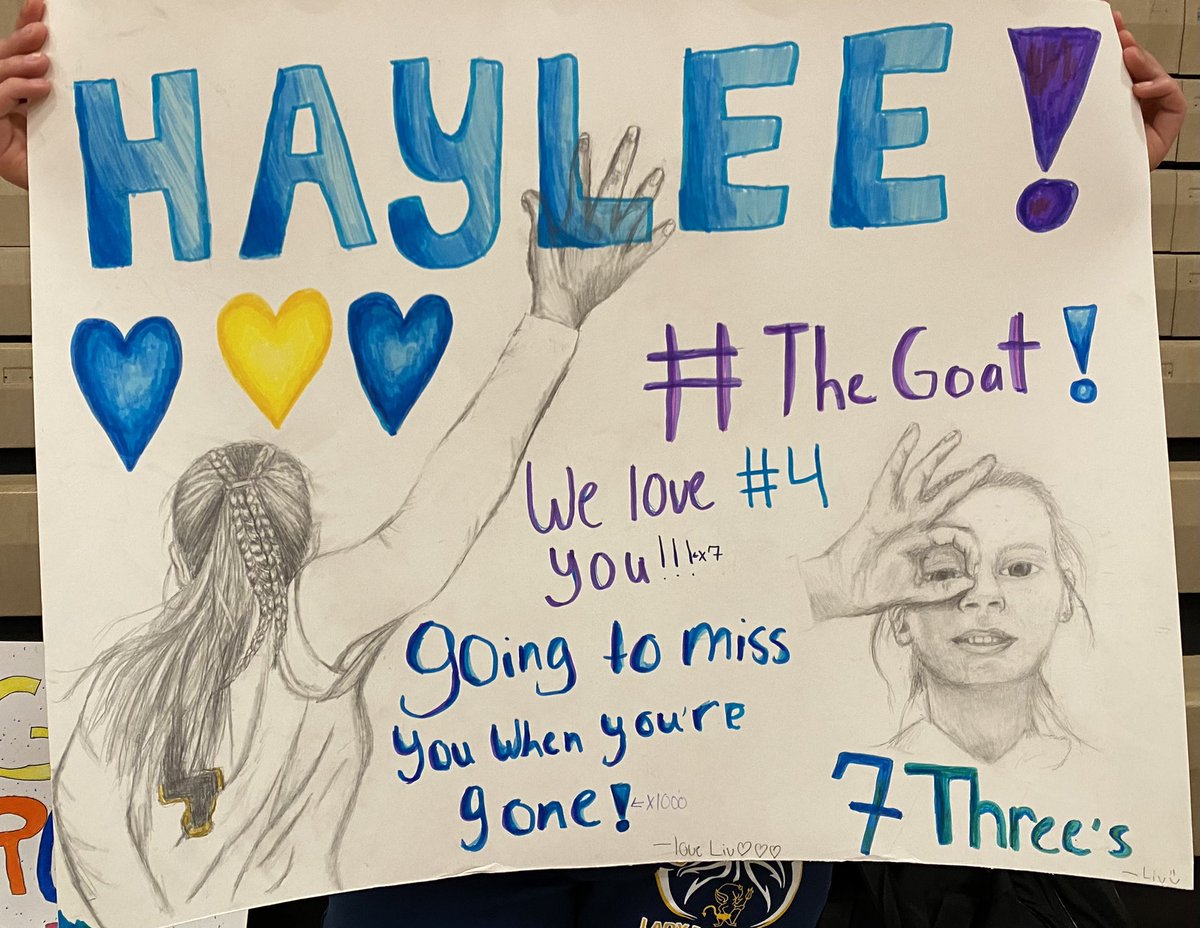 HAYLEE!
#The Goat!
We love #4
you!!! ←x7
going to miss
you when you're
gone! ←x1000
—love Liv♡♡♡
7 Three's
—Liv
LADY